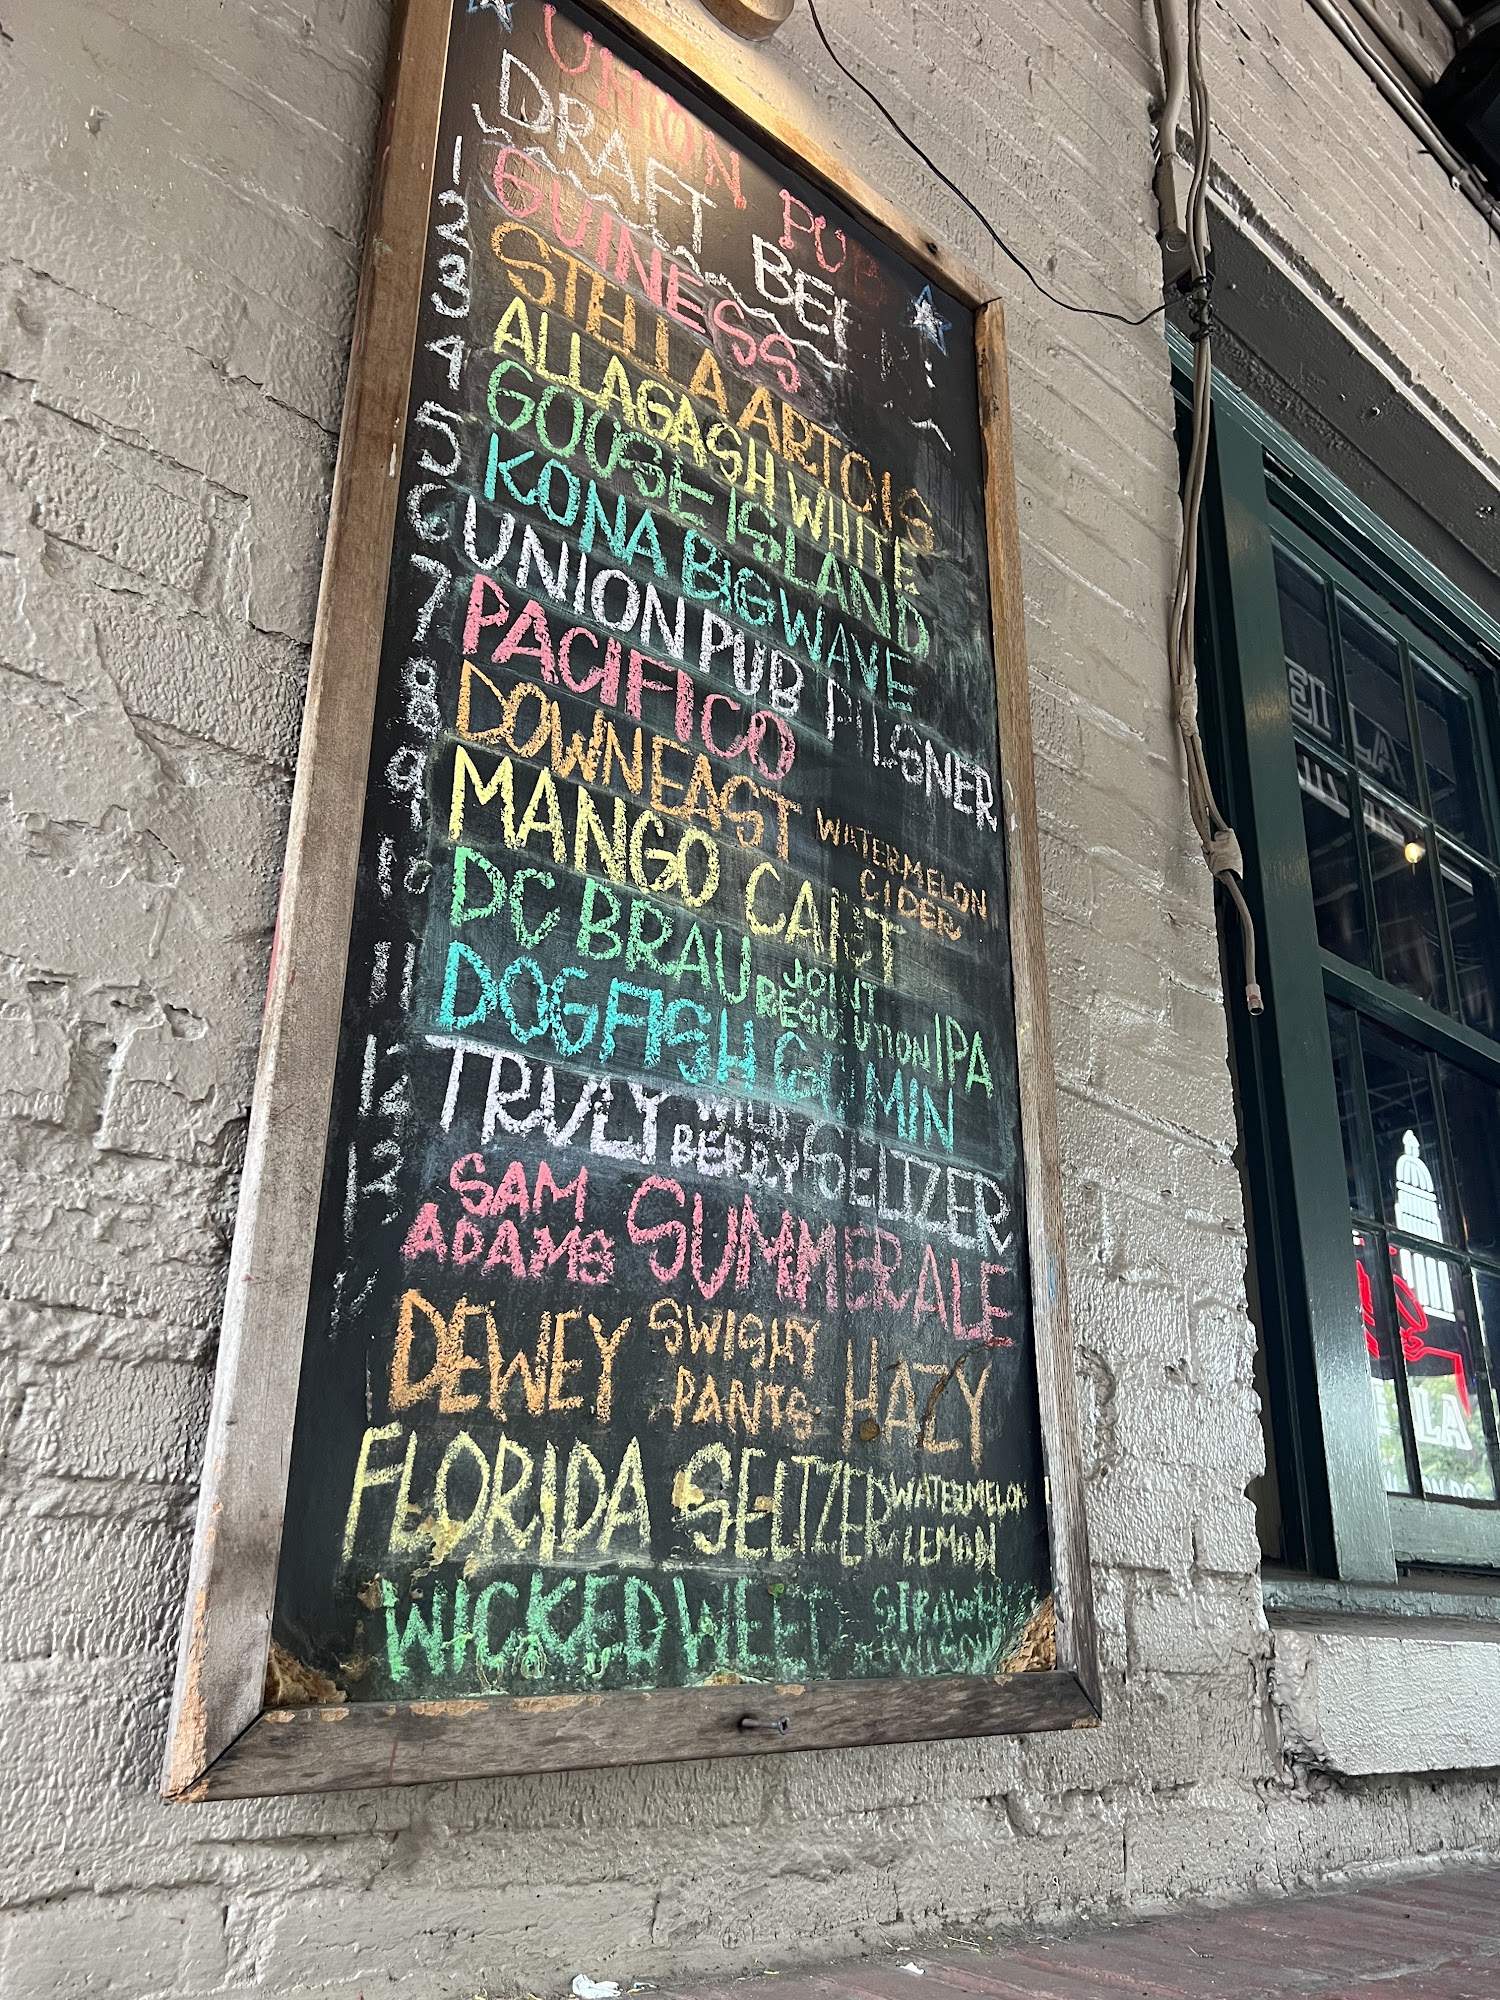 UNION PUB
DRAFT BEER
1 GUINESS
2 STELLA ARTOIS
3 ALLAGASH WHITE
4 GOOSE ISLAND
5 KONA BIG WAVE
6 UNION PUB PILSNER
7 PACIFICO
8 DOWNEAST WATERMELON CIDER
9 MANGO CART
10 DC BRAU JOINT RESOLUTION IPA
11 DOGFISH
12 TRULY WILD BERRY SELTZER
13 SAM ADAMS SUMMER ALE
DEWEY PANTS HAZY
FLORIDA SELTZER WATERMELON LEMON
WICKED WEED